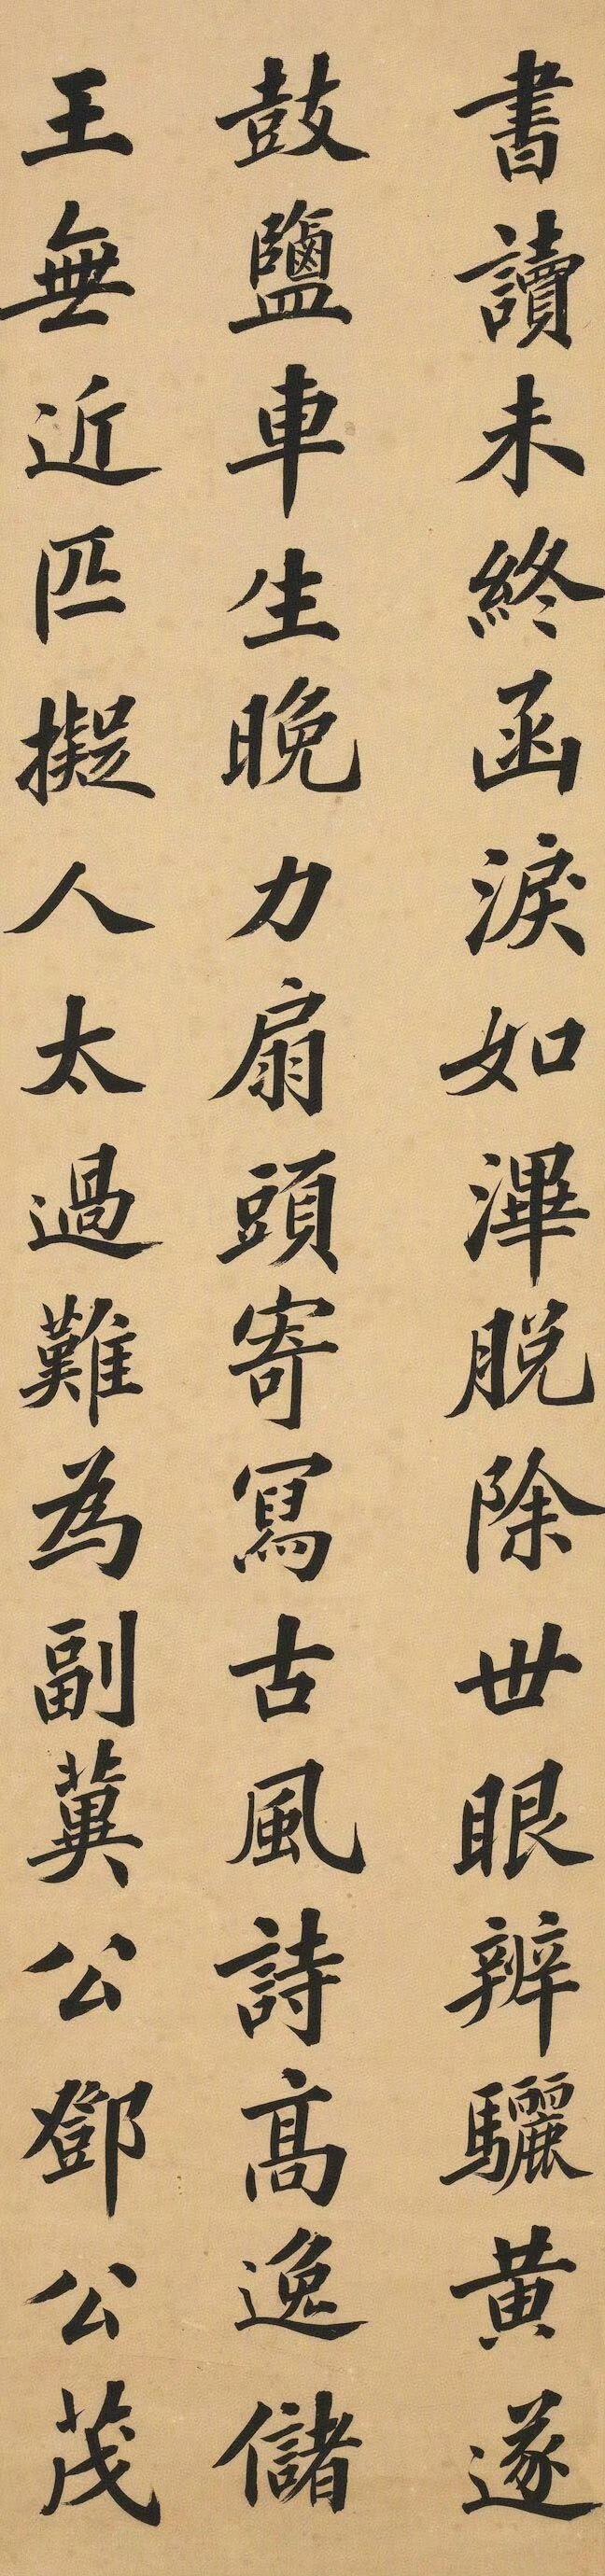 書讀未終函淚如滭脫除世眼辨驪黃遂
鼓鹽車生晚力扇頭寄寫古風詩高逸儲
王無近匹擬人太過難為副蓂公鄧公茂